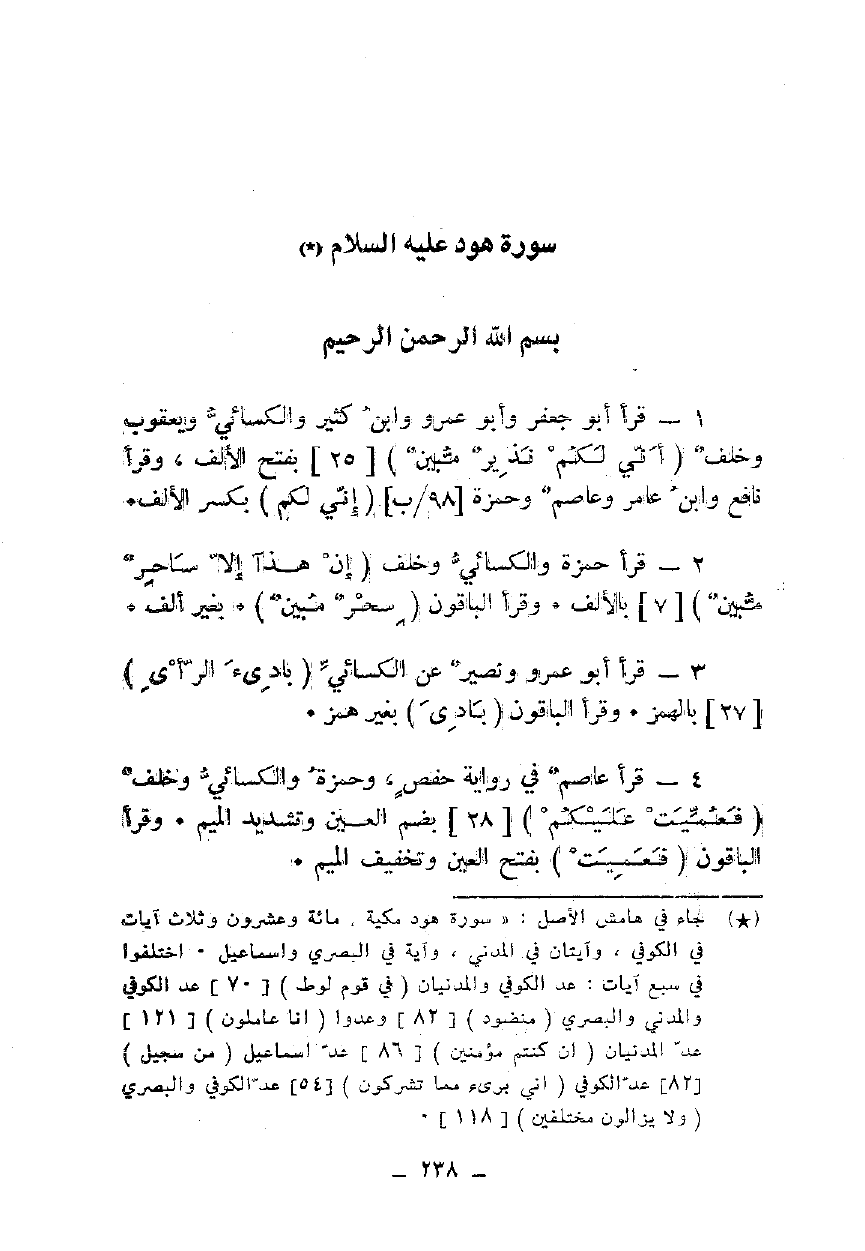 سورة هود عليه السلام (★)
بسم الله الرحمن الرحيم
١ — قرأ أبو جعفر وأبو عمرو وابنُ كثير والكسائيُّ ويعقوب
وخلفٌ ( أَنّي لَكُمْ نَذِيرٌ مُبِينٌ ) [ ٢٥ ] بفتح الألف ، وقرأ
نافع وابنُ عامر وعاصمٌ وحمزة [٩٨/ب] ( إِنّي لكم ) بكسر الألف ٠
٢ — قرأ حمزة والكسائيُّ وخلف ( إِنْ هــذآ إِلاّ سَاحِرٌ
مُبِينٌ ) [ ٧ ] بالألف ٠ وقرأ الباقون ( سِحْرٌ مُبينٌ ) ٠ بغير ألف ٠
٣ — قرأ أبو عمرو ونصيرٌ عن الكسائيِّ ( بادِىءَ الرّأْىِ )
[ ٢٧ ] بالهمز ٠ وقرأ الباقون ( بَادِىَ ) بغير همز ٠
٤ — قرأ عاصمٌ في رواية حفصٍ ، وحمزةُ والكسائيُّ وخلفٌ
( فَعُمِّيَتْ عَلَيْكُمْ ) [ ٢٨ ] بضم العــين وتشديد الميم ٠ وقرأ
الباقون ( فَعَمِيَتْ ) بفتح العين وتخفيف الميم ٠
(★) جاء في هامش الأصل : « سورة هود مكية . مائة وعشرون وثلاث آيات
في الكوفي ، وآيتان في المدني ، وآية في البصري واسماعيل ٠ اختلفوا
في سبع آيات : عد الكوفي والمدنيان ( في قوم لوط ) [ ٧٠ ] عد الكوفي
والمدني والبصري ( منضود ) [ ٨٢ ] وعدوا ( انا عاملون ) [ ١٢١ ]
عدّ المدنيان ( ان كنتم مؤمنين ) [ ٨٦ ] عدّ اسماعيل ( من سجيل )
[٨٢] عدّ الكوفي ( اني بريء مما تشركون ) [٥٤] عدّ الكوفي والبصري
( ولا يزالون مختلفين ) [ ١١٨ ] ٠
— ٢٣٨ —